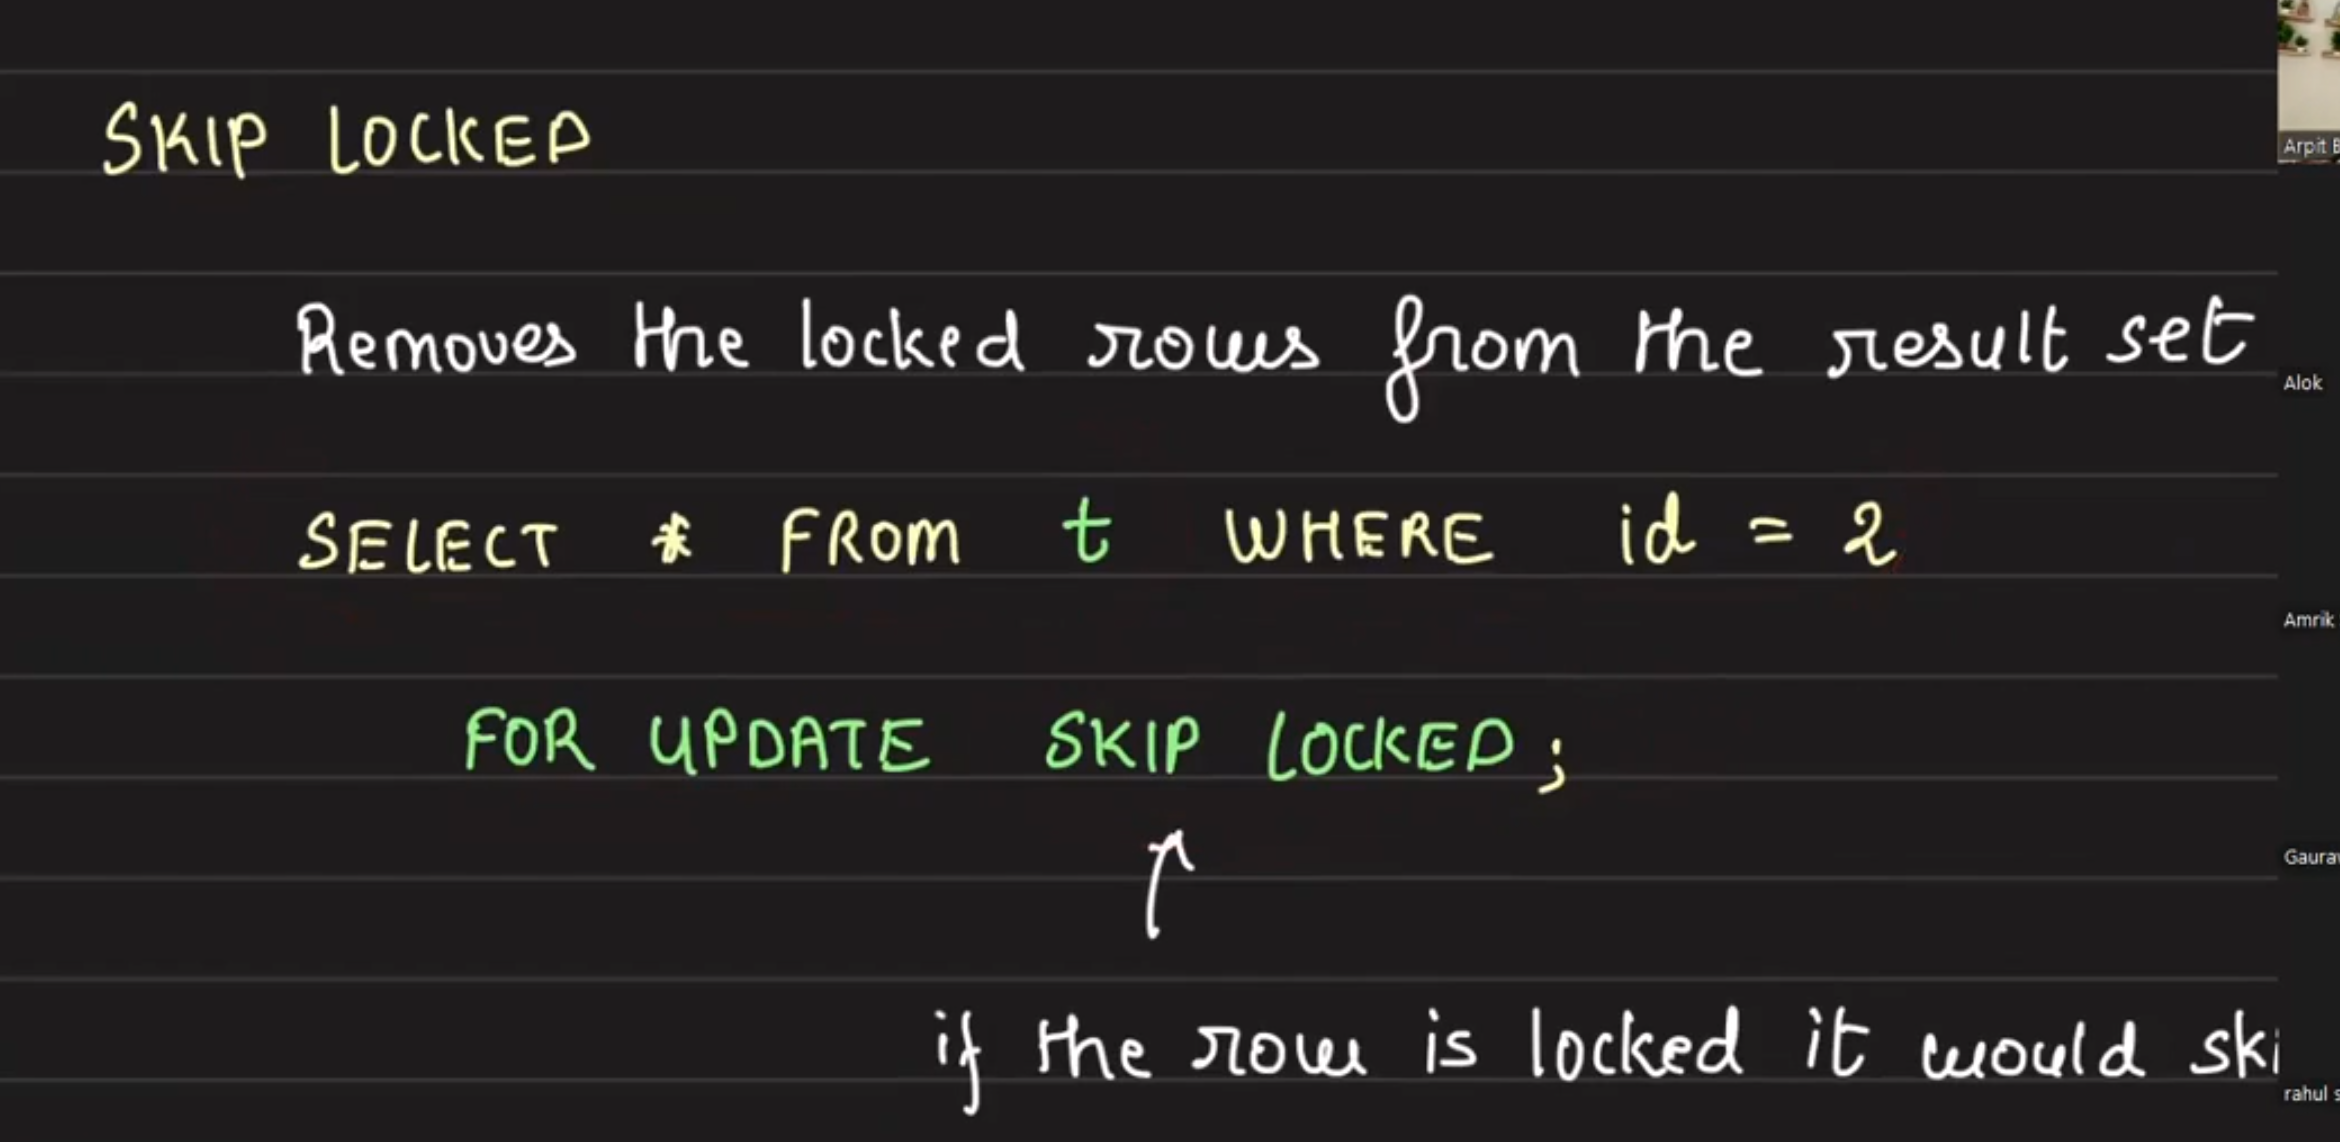 SKIP LOCKED
Removes the locked rows from the result set
SELECT * FROM t WHERE id = 2
FOR UPDATE SKIP LOCKED;
if the row is locked it would ski
Arpit B
Alok
Amrik
Gaurav
rahul s